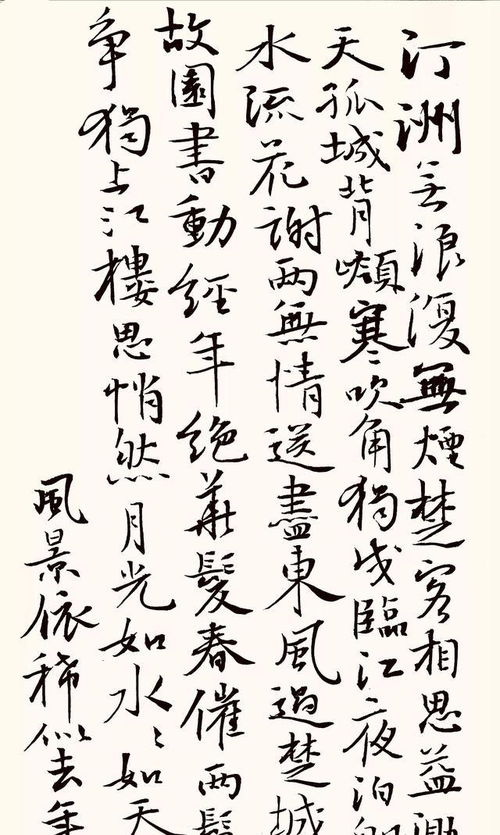 汀洲无浪復無煙楚客相思益渺
天孤城背嶺寒吹角獨戍臨江夜泊船
水流花謝两無情送盡東風過楚城
故園書動經年絶華髮春催两鬢
争獨上江樓思悄然月光如水水如天
風景依稀似去年